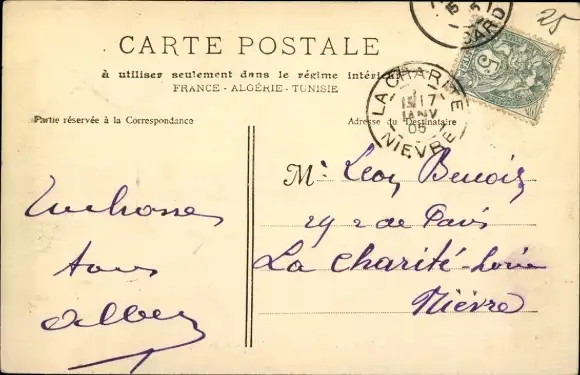 25
GARD
5c
CARTE POSTALE
à utiliser seulement dans le régime intérieur
FRANCE - ALGÉRIE - TUNISIE
LA CHARITÉ
17
JANV
05
NIÈVRE
Partie réservée à la Correspondance
Adresse du Destinataire
Mr Léon Benoist
29 r de Paris
La Charité-Loire
Nièvre
tous
Albert